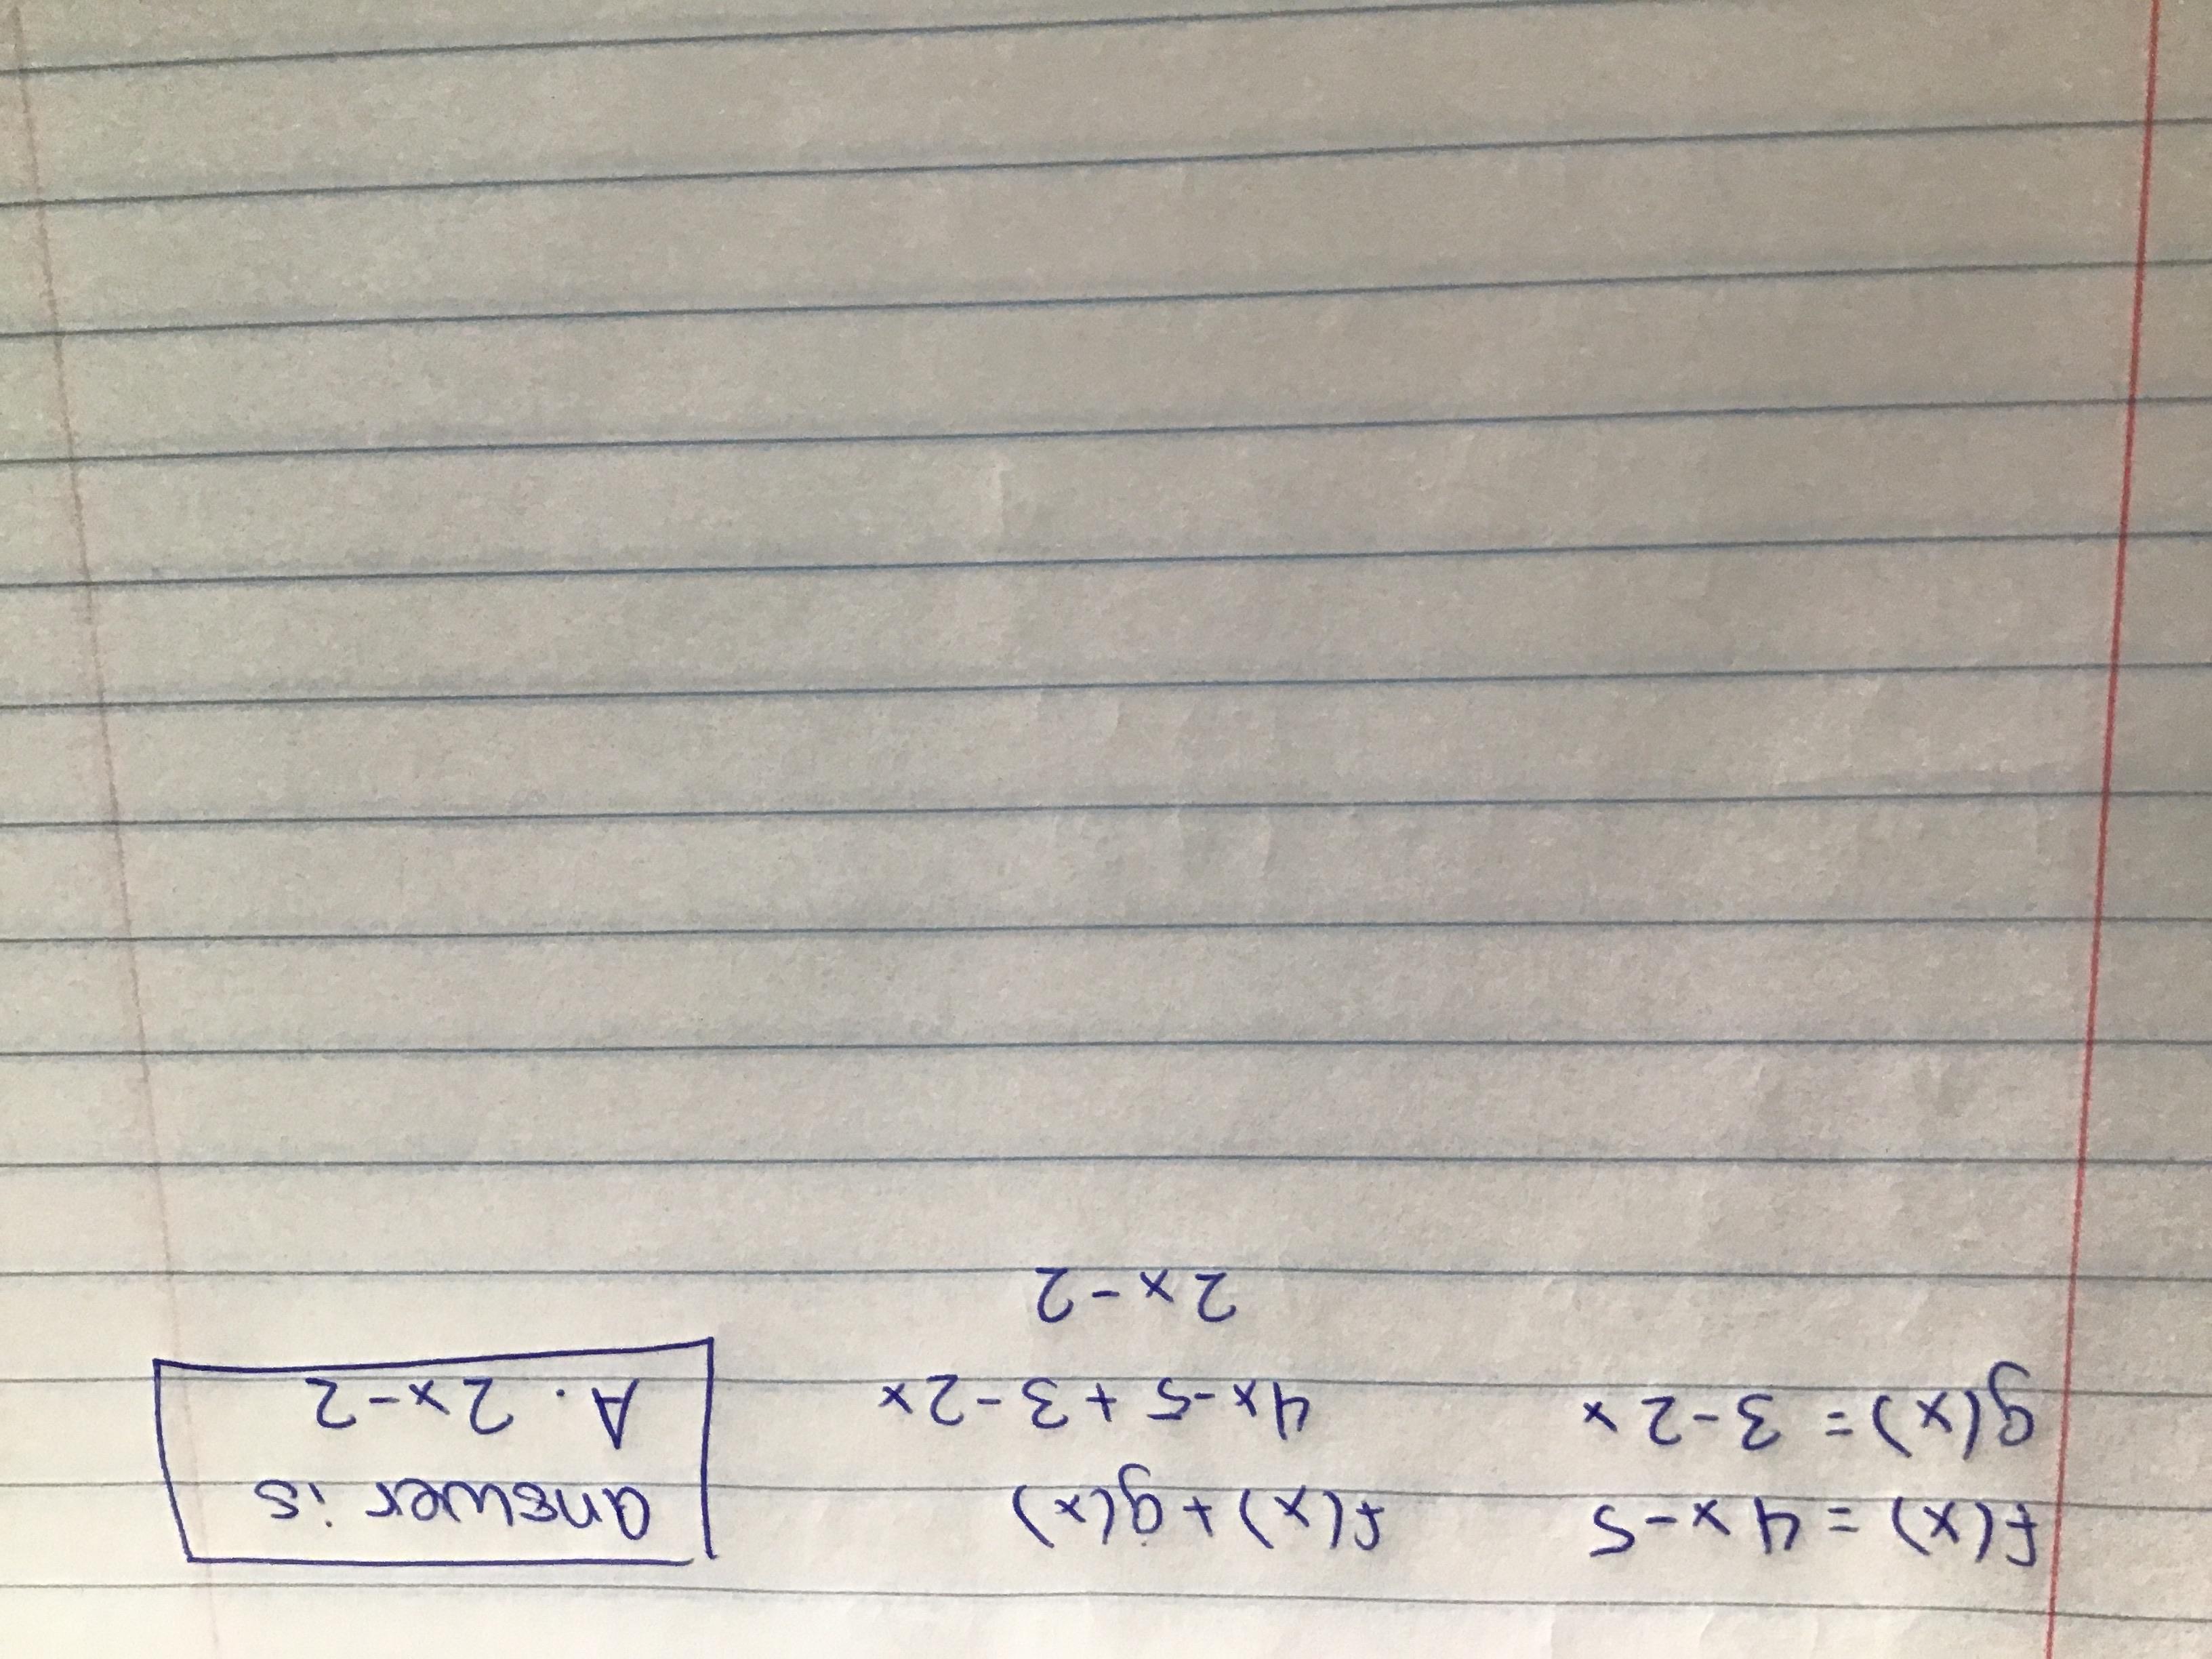 f(x) = 4x-5
g(x) = 3-2x
f(x) + g(x)
4x-5+3-2x
2x-2
answer is
A. 2x-2